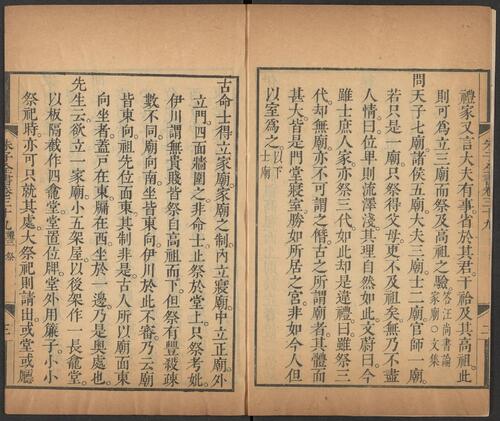 禮家又言大夫有事省於其君干祫及其高祖此
則可為立三廟而祭及高祖之驗答汪尚書論家廟○文集
問天子七廟諸侯五廟大夫三廟士二廟官師一廟
若只是一廟只祭得父母更不及祖矣無乃不盡
人情曰位卑則流澤淺其理自然如此文蔚曰今
雖士庶人家亦祭三代如此却是違禮曰雖祭三
代却無廟亦不可謂之僭古之所謂廟者其體面
甚大皆是門堂寢室勝如所居之宮非如今人但
以室為之以下士廟
古命士得立家廟家廟之制內立寢廟中立正廟外
立門四面牆圍之非命士止祭於堂上只祭考妣
伊川謂無貴賤皆祭自高祖而下但祭有豐殺疎
數不同廟向南坐皆東向伊川於此不審乃云廟
皆東向祖先位面東其制非是古人所以廟面東
向坐者蓋戶在東牖在西坐於一邊乃是奧處也
先生云欲立一家廟小五架屋以後架作一長龕堂
以板隔截作四龕堂堂置位牌堂外用簾子小小
祭祀時亦可只就其處大祭祀則請出或堂或廳